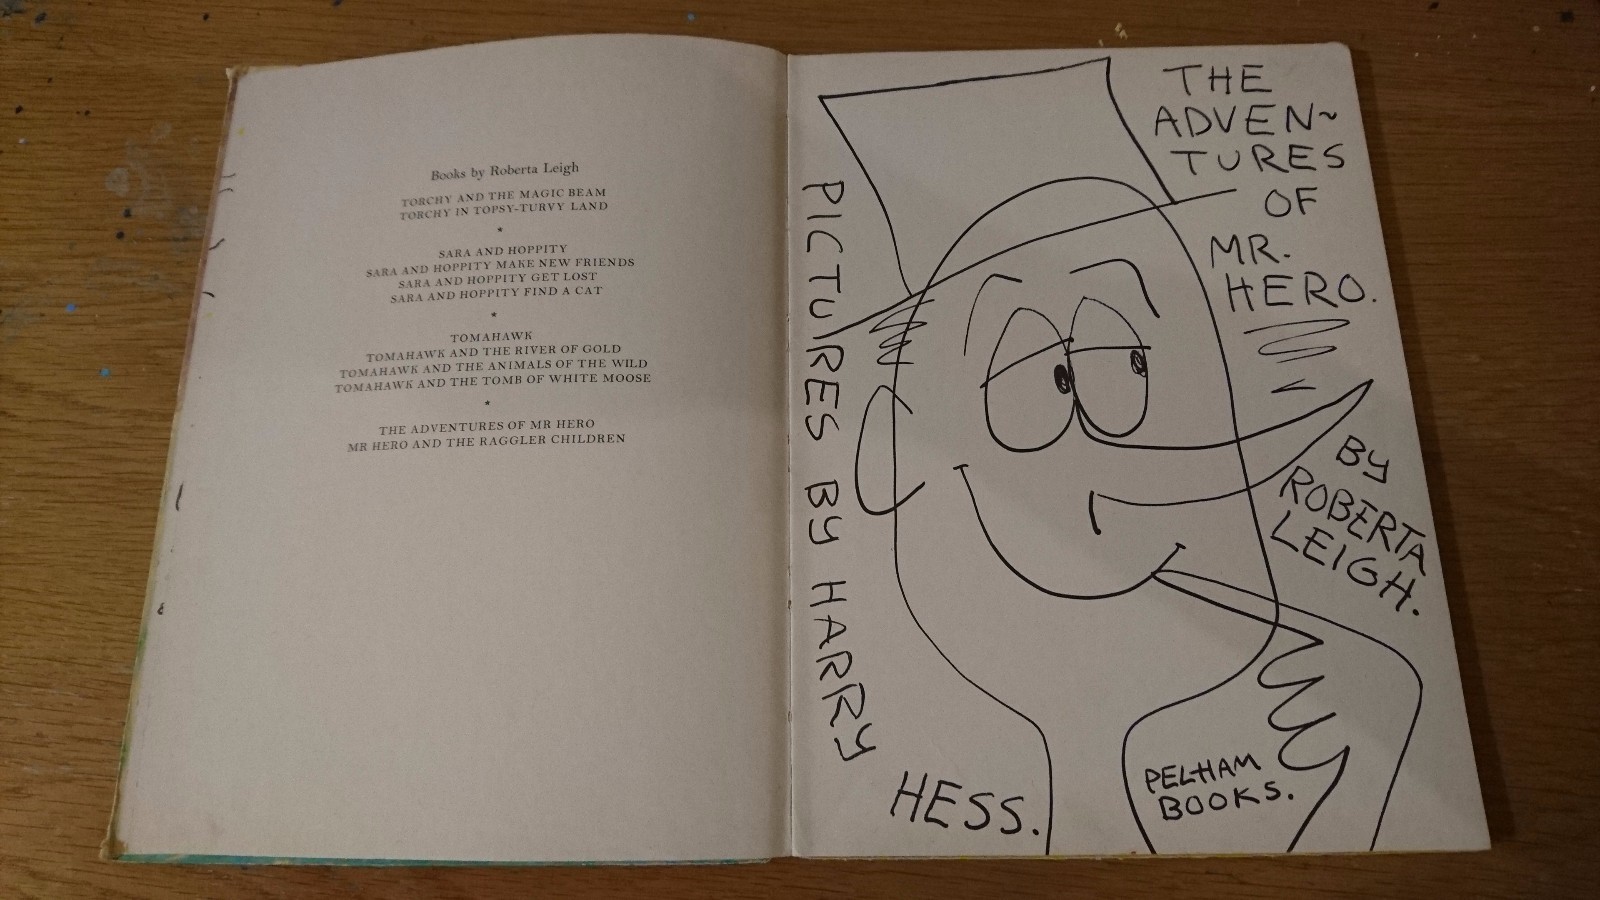 Books by Roberta Leigh
TORCHY AND THE MAGIC BEAM
TORCHY IN TOPSY-TURVY LAND
*
SARA AND HOPPITY
SARA AND HOPPITY MAKE NEW FRIENDS
SARA AND HOPPITY GET LOST
SARA AND HOPPITY FIND A CAT
*
TOMAHAWK
TOMAHAWK AND THE RIVER OF GOLD
TOMAHAWK AND THE ANIMALS OF THE WILD
TOMAHAWK AND THE TOMB OF WHITE MOOSE
*
THE ADVENTURES OF MR HERO
MR HERO AND THE RAGGLER CHILDREN
THE
ADVEN~
TURES
OF
MR.
HERO.
BY
ROBERTA
LEIGH.
PICTURES BY HARRY
HESS.
PELHAM
BOOKS.